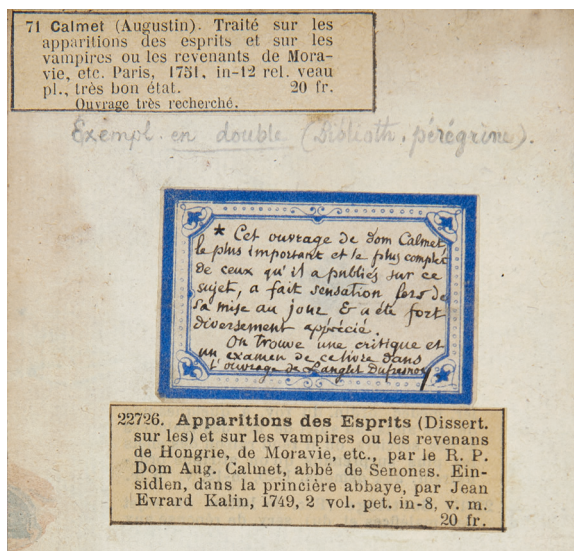 71 Calmet (Augustin). Traité sur les
apparitions des esprits et sur les
vampires ou les revenants de Mora-
vie, etc. Paris, 1751, in-12 rel. veau
pl., très bon état. 20 fr.
Ouvrage très recherché.
Exempl. en double (Biblioth. pérégrine).
* Cet ouvrage de Dom Calmet,
le plus important et le plus complet
de ceux qu'il a publiés sur ce
sujet, a fait sensation lors de
sa mise au jour & a été fort
diversement apprécié.
On trouve une critique et
un examen de ce livre dans
l'ouvrage de Langlet Dufresnoy
22726. Apparitions des Esprits (Dissert.
sur les) et sur les vampires ou les revenans
de Hongrie, de Moravie, etc., par le R. P.
Dom Aug. Calmet, abbé de Senones. Ein-
sidlen, dans la princière abbaye, par Jean
Evrard Kalin, 1749, 2 vol. pet. in-8, v. m.
20 fr.